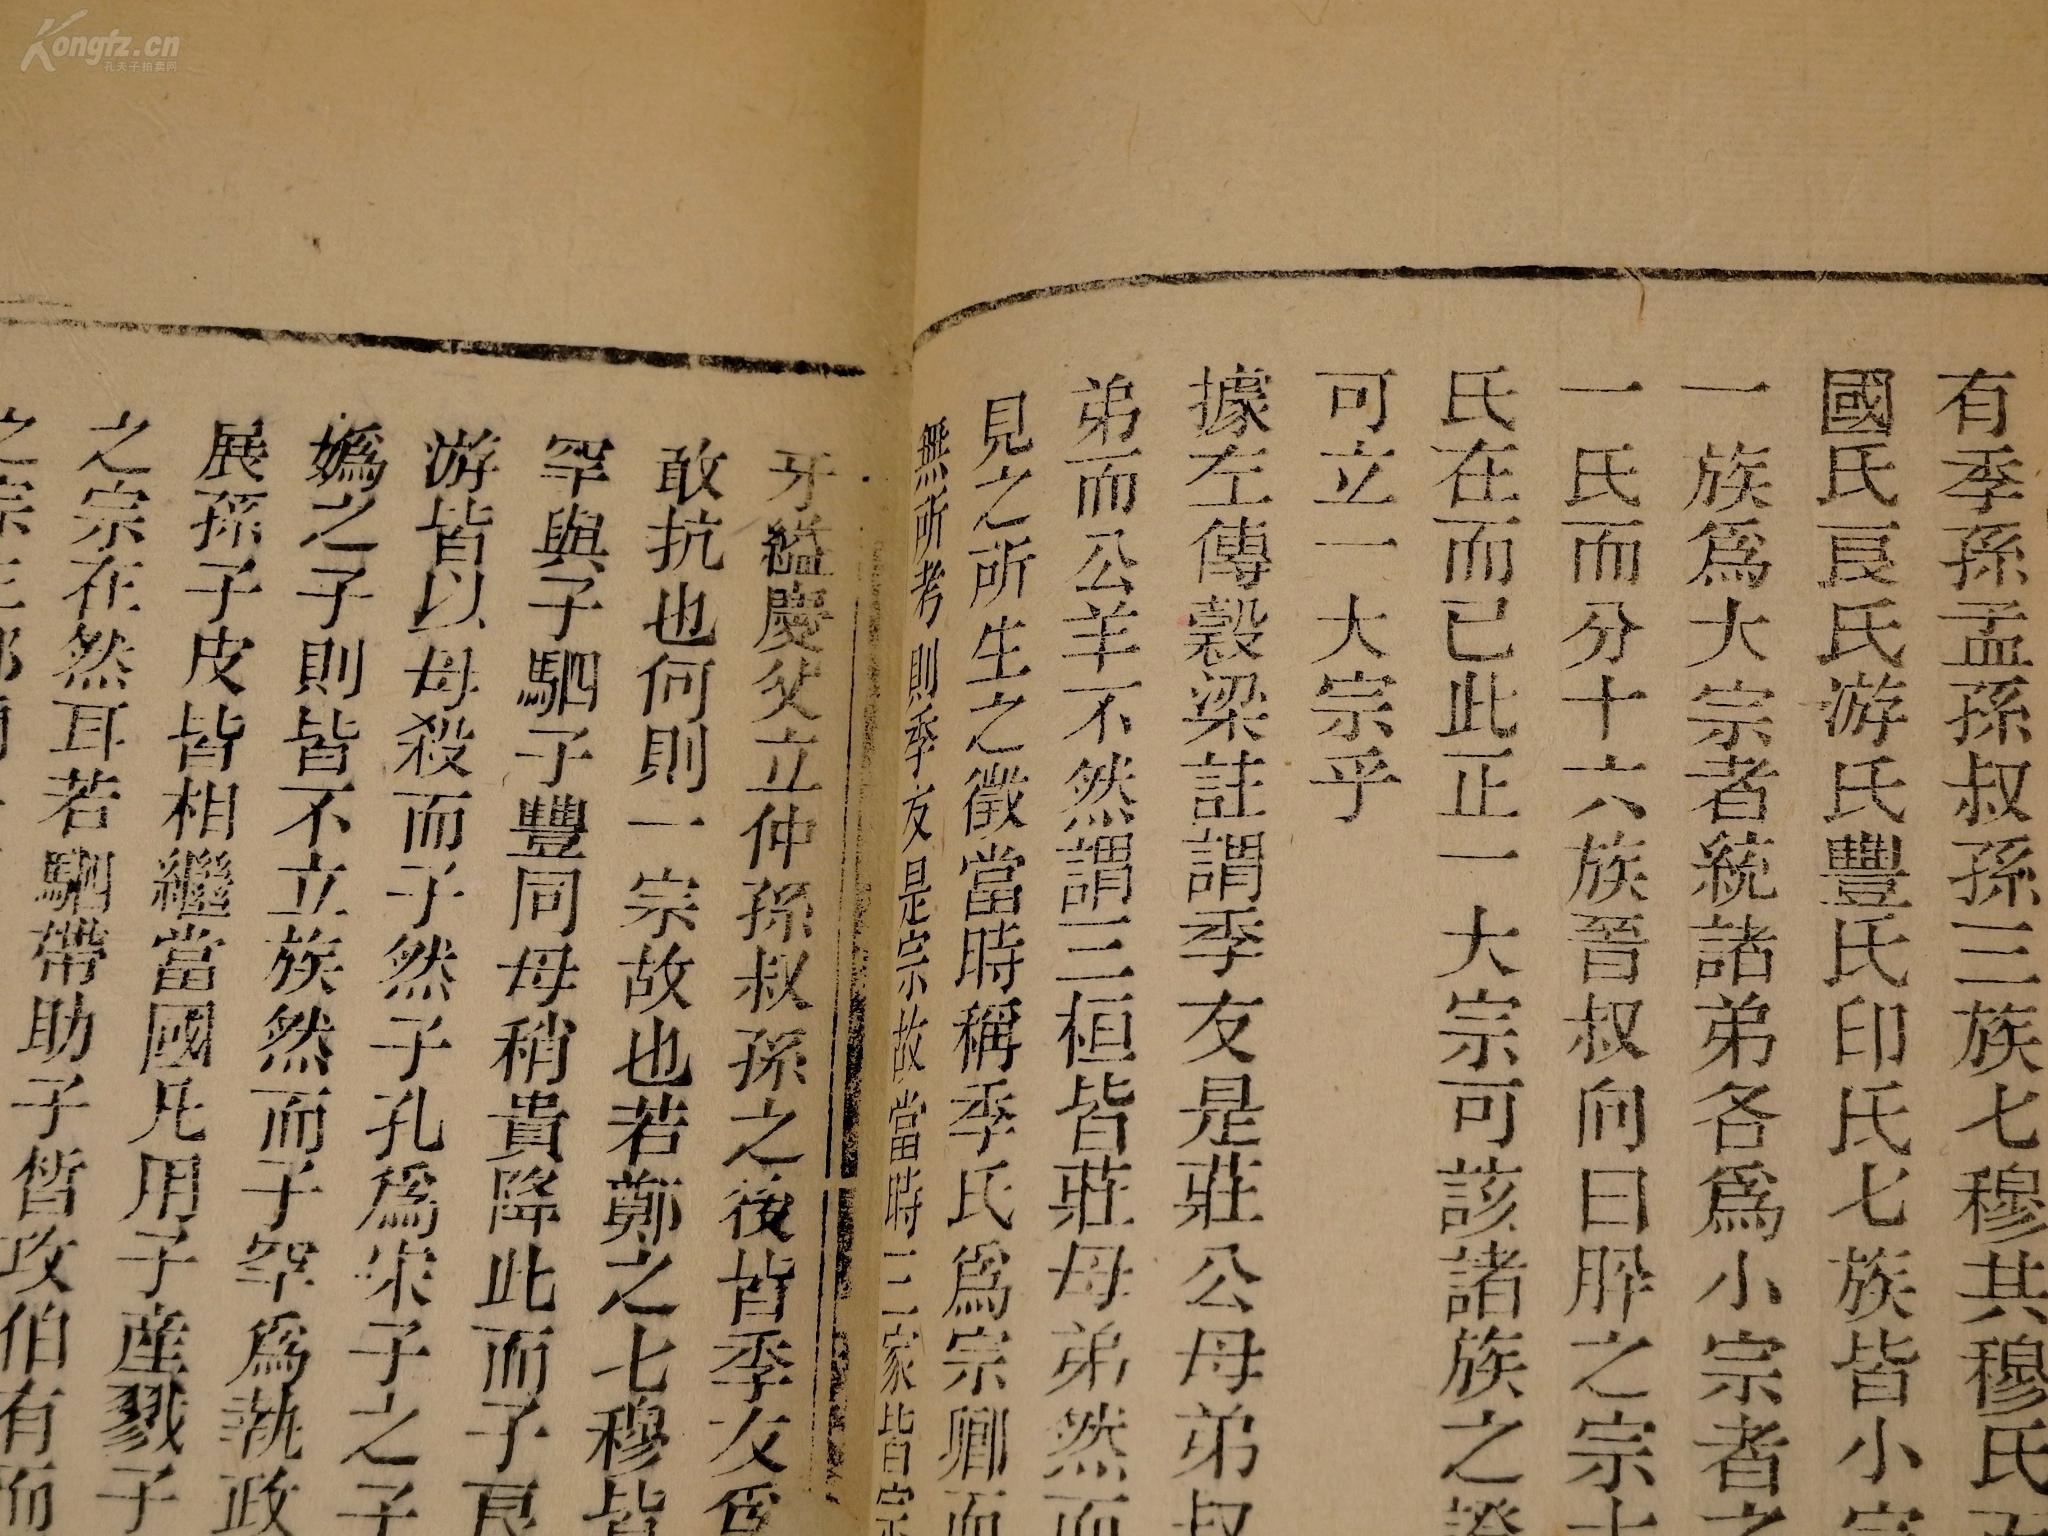 Kongfz.cn
孔夫子拍卖网
有季孫孟孫叔孫三族七穆共穆氏
國氏良氏游氏豐氏印氏七族皆小
一族爲大宗者統諸弟各爲小宗者之
一氏而分十六族晉叔向曰肸之宗十
氏在而已此正一大宗可該諸族之證
可立一大宗乎
據左傳穀梁註謂季友是莊公母弟叔
弟而公羊不然謂三桓皆莊母弟然而
見之所生之徵當時稱季氏爲宗卿而
無所考則季友是宗故當時三家皆宗
牙縊慶父立仲孫叔孫之後皆季友爲
敢抗也何則一宗故也若鄭之七穆皆
罕與子駟子豐同母稍貴降此而子良
游皆以母殺而子然子孔爲宋子之子
嬀之子則皆不立族然而子罕爲執政
展孫子皮皆相繼當國凡用子產戮子
之宗在然耳若駟帶助子晳攻伯有而